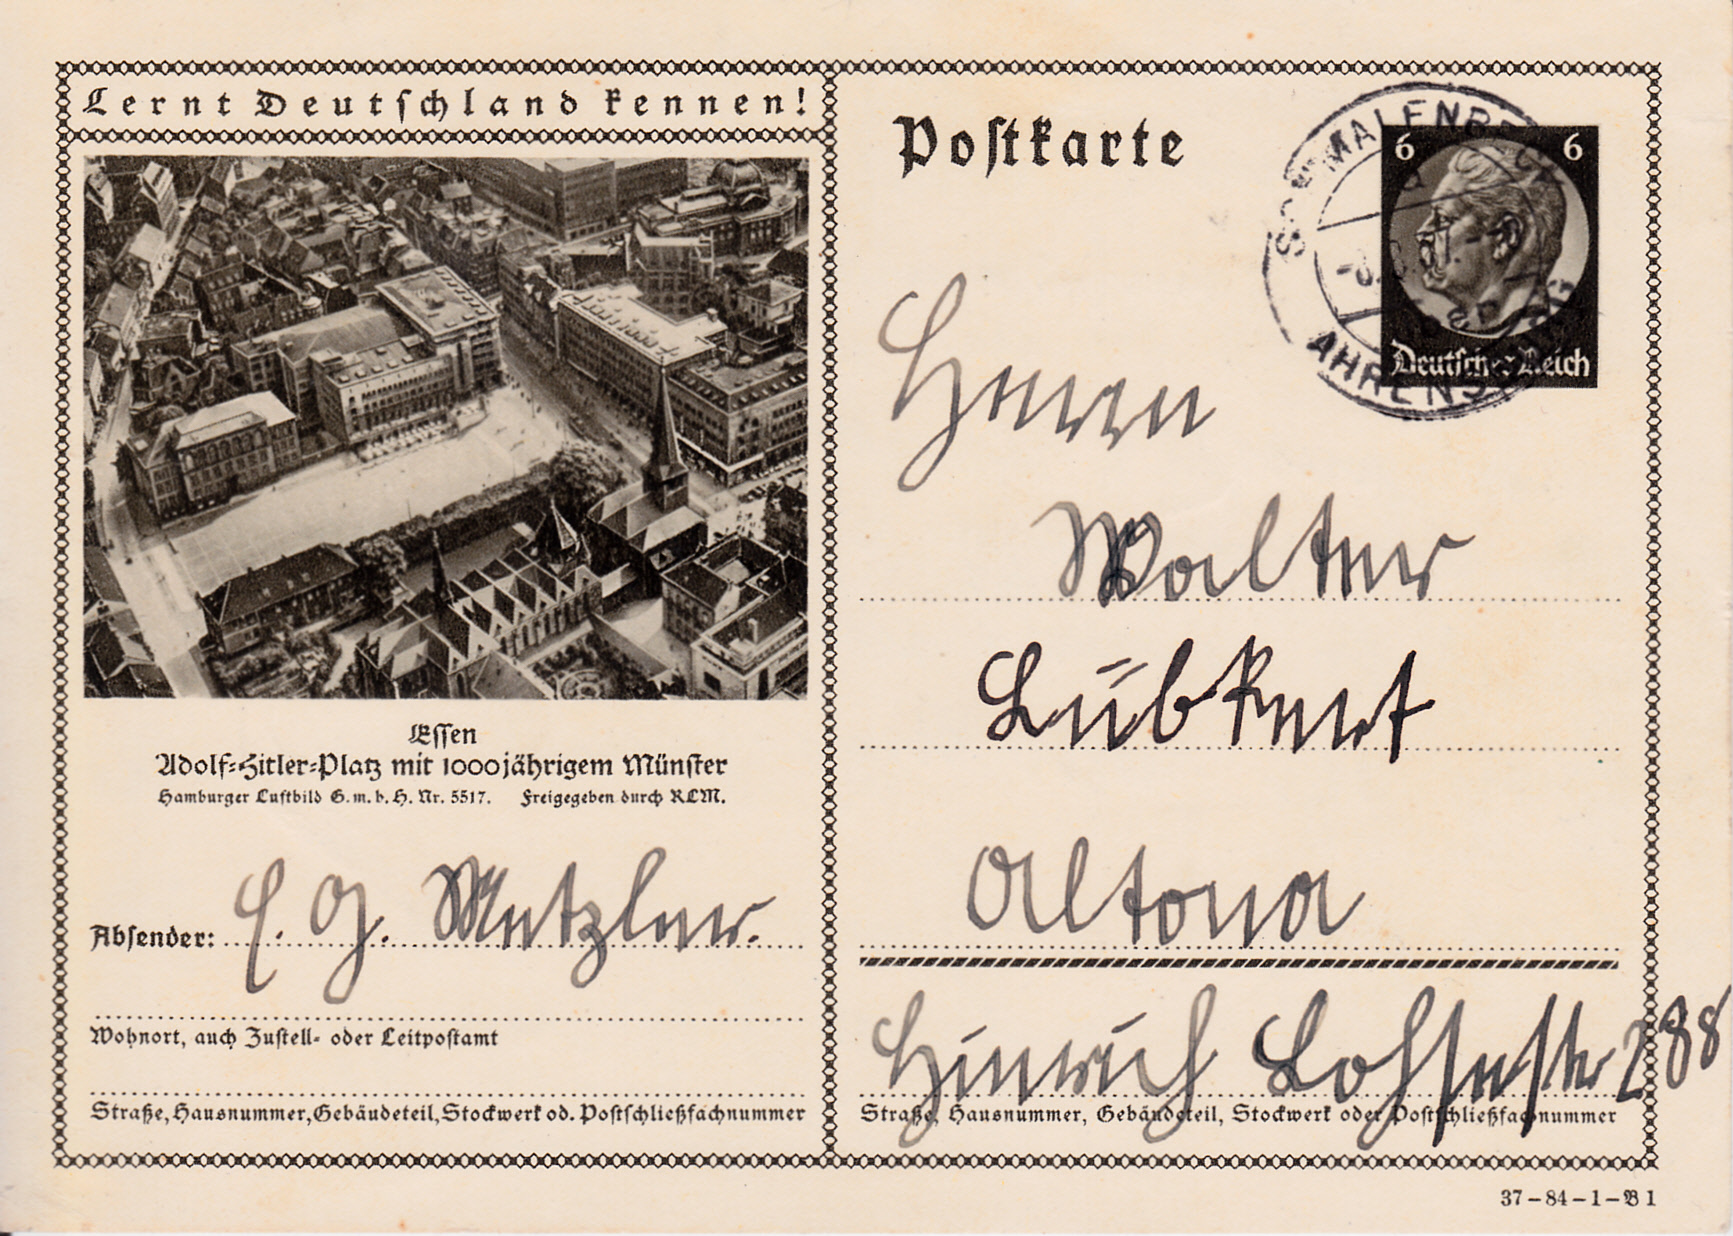 Lernt Deutschland kennen!
Essen
Adolf-Hitler-Platz mit 1000jährigem Münster
Hamburger Luftbild G.m.b.H. Nr. 5517. Freigegeben durch RLM.
Absender: E. G. Metzler.
Wohnort, auch Zustell- oder Leitpostamt
Straße, Hausnummer, Gebäudeteil, Stockwerk od. Postschließfachnummer
Postkarte
6 6
Deutsches Reich
SCHMALENBECK
AHRENSBURG
Herrn
Walter
Lübkert
Altona
Hinrich Lohsestr 288
Straße, Hausnummer, Gebäudeteil, Stockwerk oder Postschließfachnummer
37-84-1-B 1